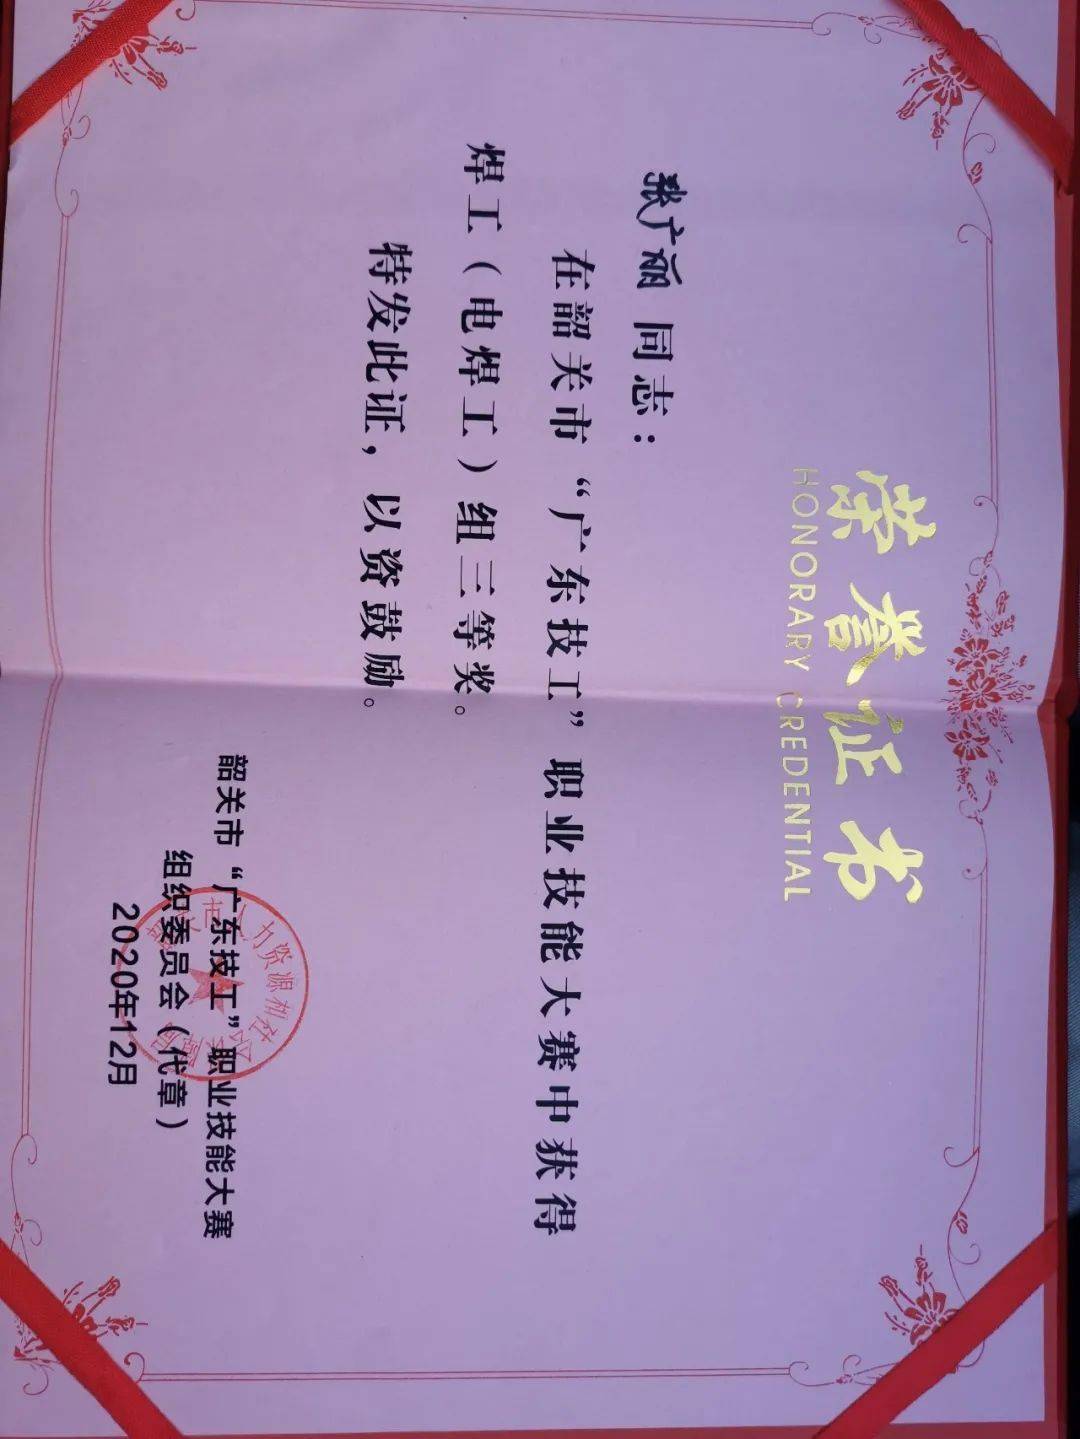 荣誉证书
HONORARY CREDENTIAL
张广丽 同志：
在韶关市“广东技工”职业技能大赛中获得
焊工（电焊工）组三等奖。
特发此证，以资鼓励。
韶关市“广东技工”职业技能大赛
组织委员会（代章）
2020年12月
韶关市人力资源和社会保障局